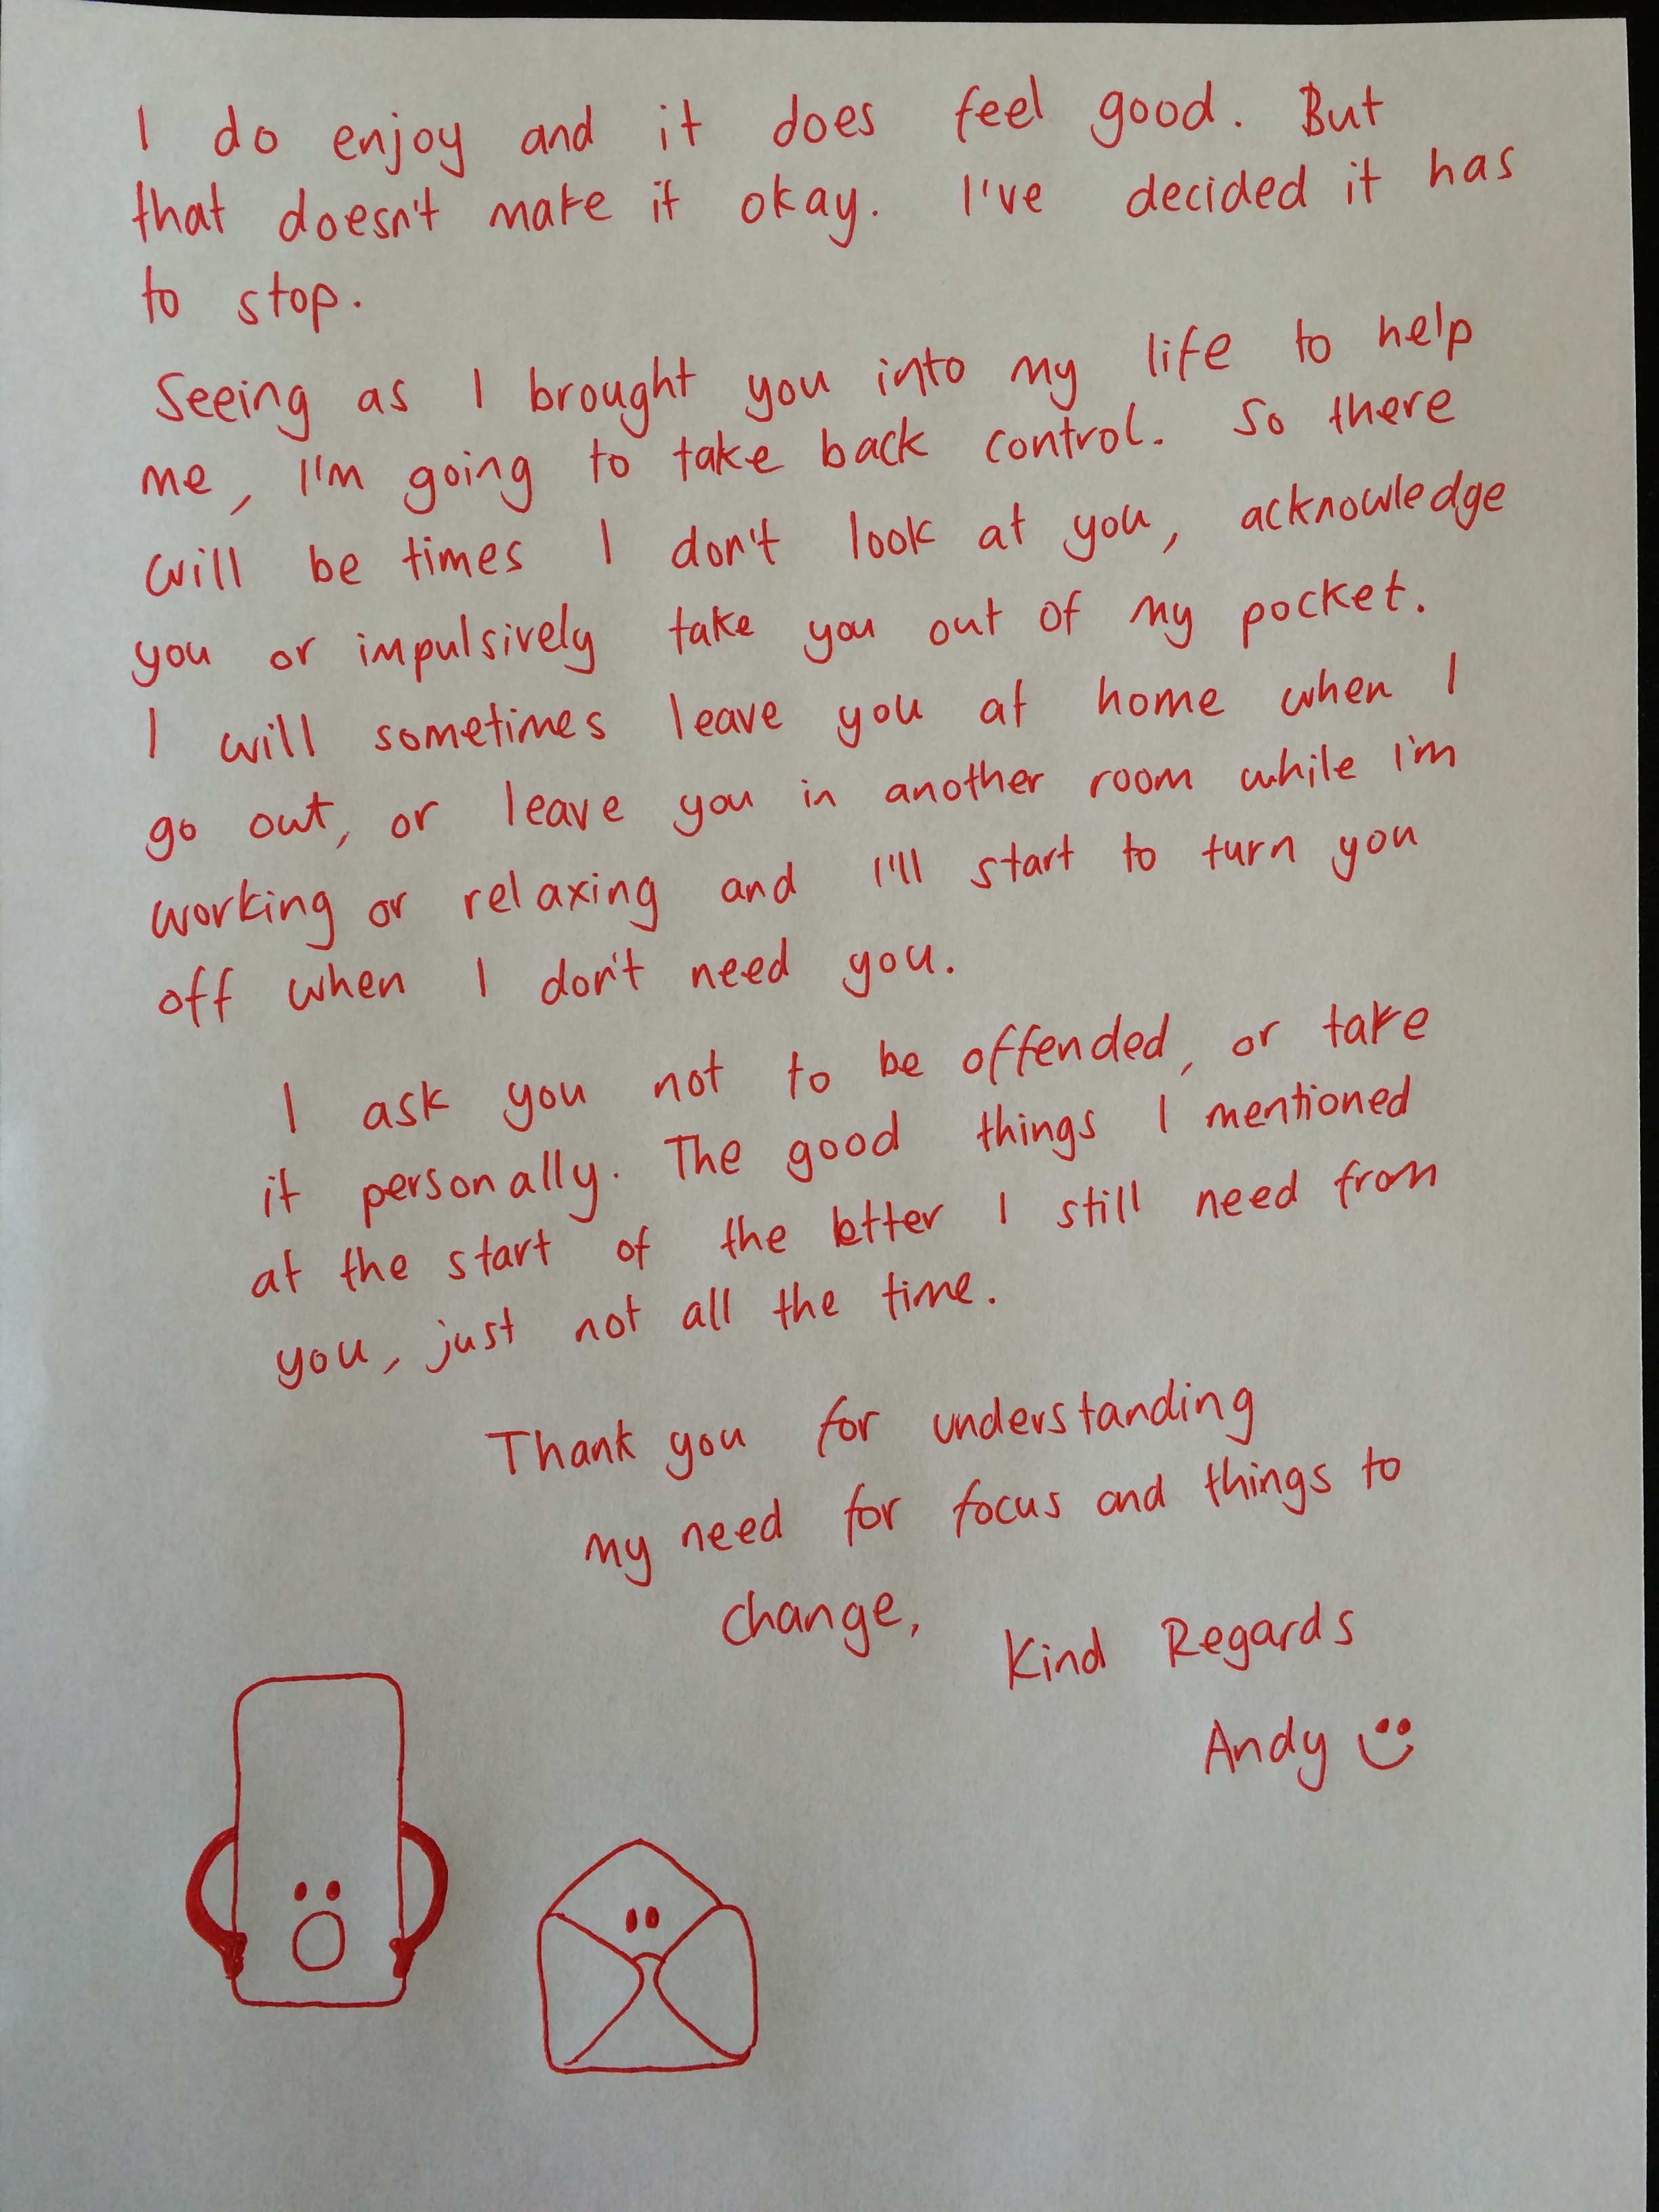 I do enjoy and it does feel good. But
that doesn't make it okay. I've decided it has
to stop.
Seeing as I brought you into my life to help
me, I'm going to take back control. So there
will be times I don't look at you, acknowledge
you or impulsively take you out of my pocket.
I will sometimes leave you at home when I
go out, or leave you in another room while I'm
working or relaxing and I'll start to turn you
off when I don't need you.
I ask you not to be offended, or take
it personally. The good things I mentioned
at the start of the letter I still need from
you, just not all the time.
Thank you for understanding
my need for focus and things to
change,
Kind Regards
Andy